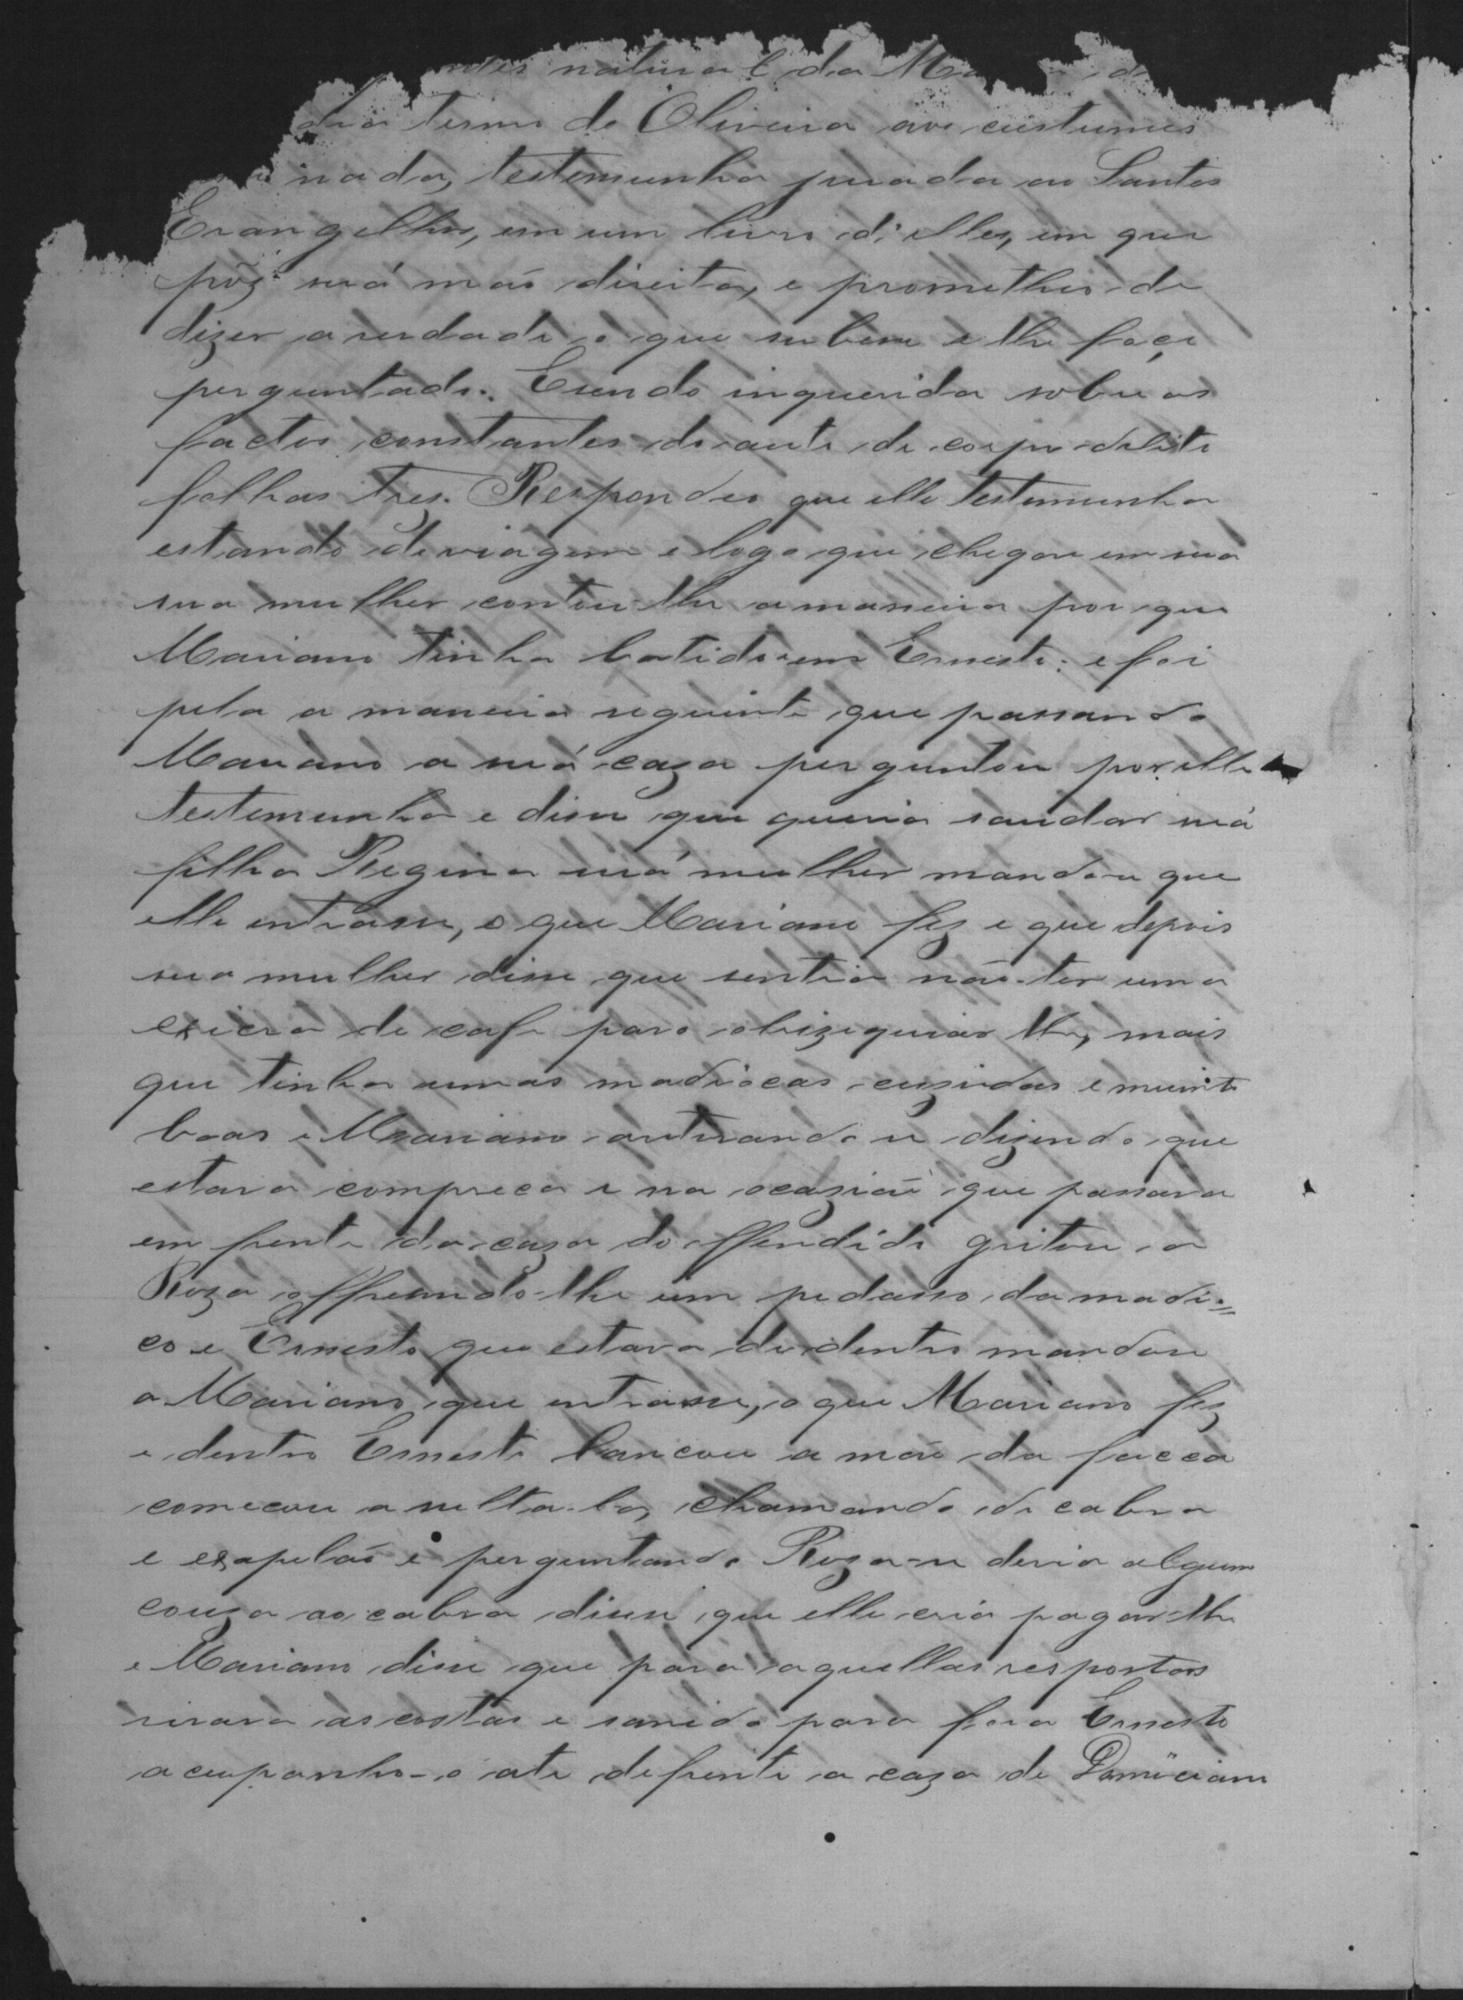 natural da
termo de Oliveira aos custumes
nada, testemunha jurada ao Santos
Evangelhos, em um livro d'elles, em que
pôz suá mão direita, e prometheo de
dizer a verdade o que subece e lhe foce
perguntado. E sendo inquerida sobre os
factos constantes do auto de corpo delito
folhas tres. Respondeo que elle testemunha
estando de viagem e logo que chegou em sua
sua mulher contou-lhe a maneira por que
Mariano tinha batido em Ernesto: e foi
pela a maneira seguinte que passando
Mariano a suá caza perguntou por elle
testemunha e disse que queria saudar suá
filha Regina suá mulher mandou que
elle entrasse, o que Mariano fez e que depois
sua mulher disse que sentia não ter uma
chicra de cafe para obizequiar lhe, mais
que tinha umas madiocas cuzidas e muinto
boas e Mariano dizendo que
estava compreca e na ocazião que passava
em frente da caza do offendido gritou a
Roza offrecendo-lhe um pedasso da madi=
co e Ernesto que estava de dentro mandou
a Mariano que entrasse, o que Mariano fez
e dentro Ernesto lancou a mão da facca
comecou a chamando de cabra
e e perguntando Roza se devia algum
couza ao cabra disse que elle eria pagar-lhe
e Mariano disse que para aquellas respostas
virava as costas e sahido para fora Ernesto
acupanho-o ate defrente a caza de Domiciano